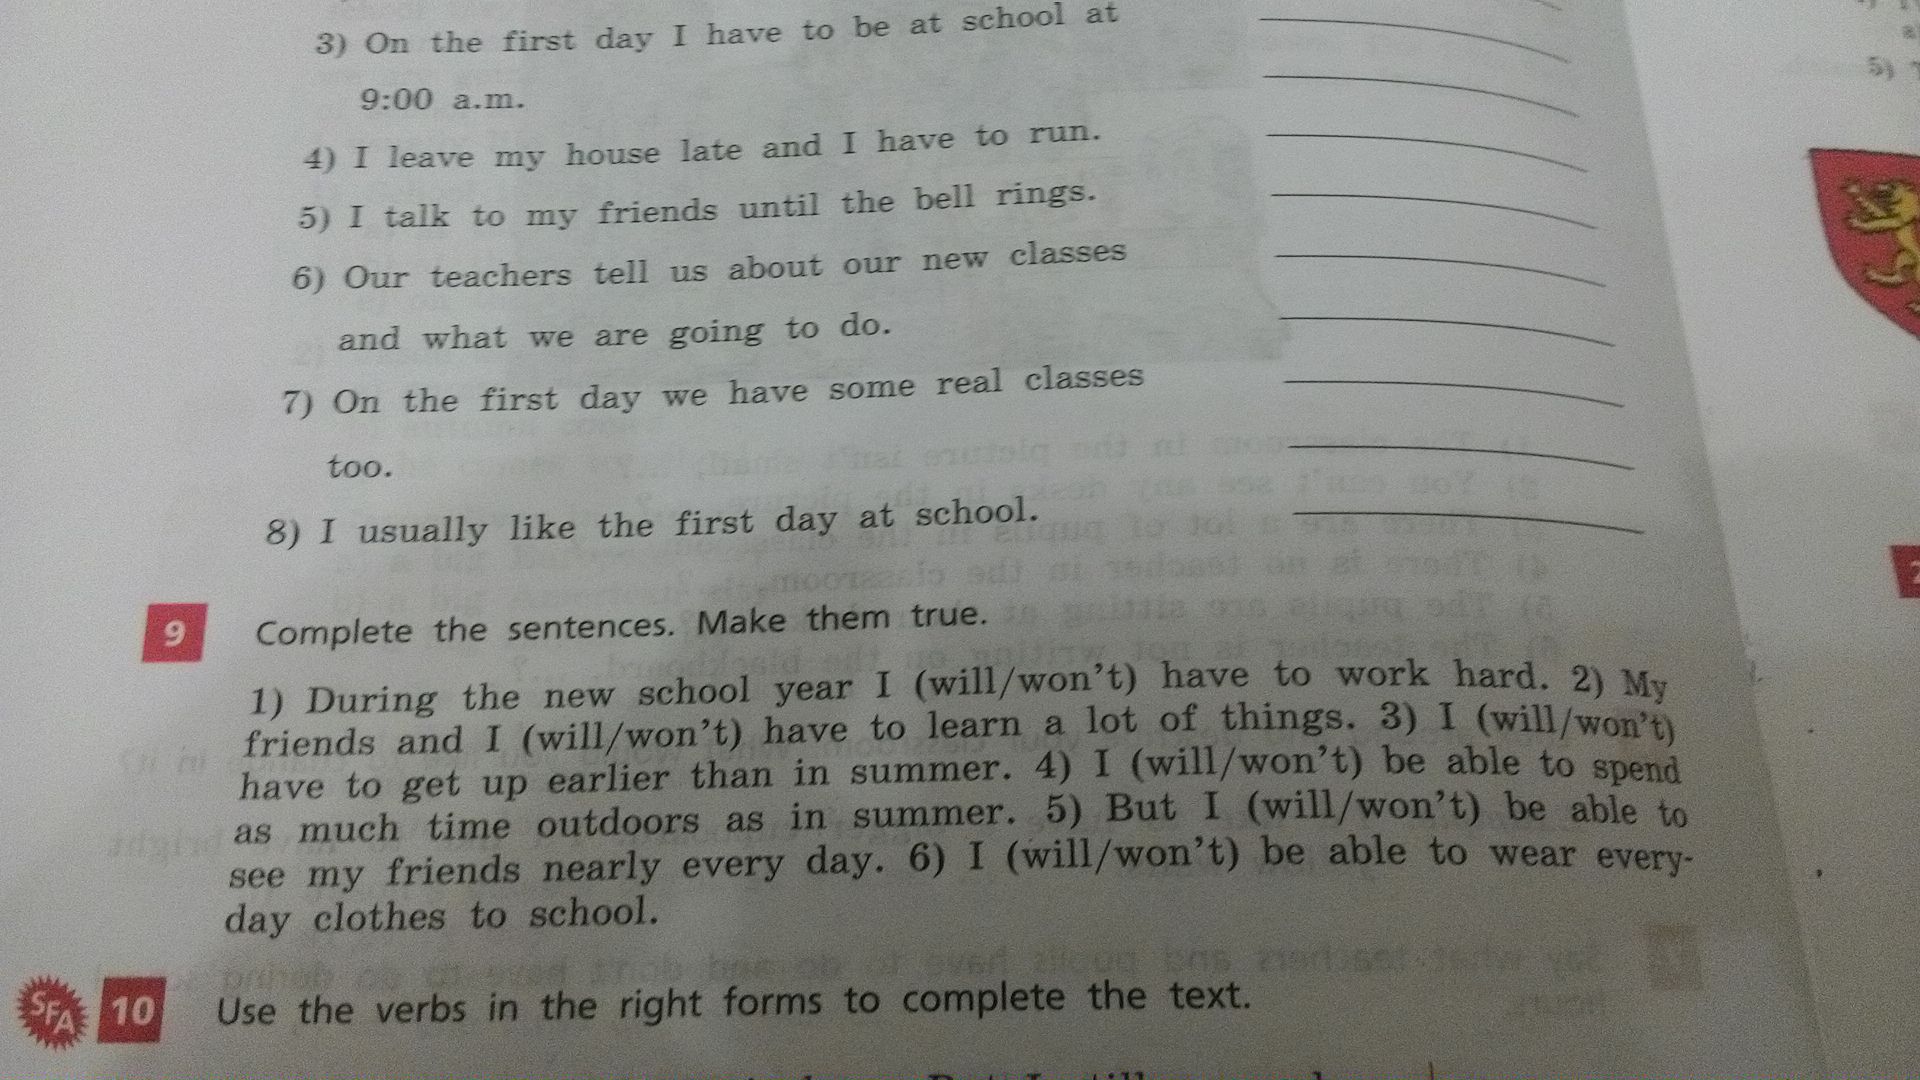 3) On the first day I have to be at school at
9:00 a.m.
4) I leave my house late and I have to run.
5) I talk to my friends until the bell rings.
6) Our teachers tell us about our new classes
and what we are going to do.
7) On the first day we have some real classes
too.
8) I usually like the first day at school.
9 Complete the sentences. Make them true.
1) During the new school year I (will/won't) have to work hard. 2) My
friends and I (will/won't) have to learn a lot of things. 3) I (will/won't)
have to get up earlier than in summer. 4) I (will/won't) be able to spend
as much time outdoors as in summer. 5) But I (will/won't) be able to
see my friends nearly every day. 6) I (will/won't) be able to wear every-
day clothes to school.
SFA 10 Use the verbs in the right forms to complete the text.
5)
2